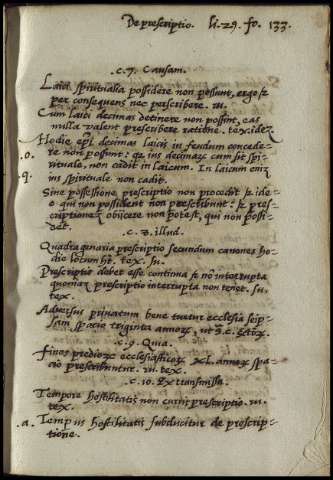 De prescriptio. li. 29. fo. 133.
c. 7. Causam.
Laici spiritualia possidere non possunt, ergo et
per consequens nec perscribere. in.
Cum laici decimas detinere non possint, eas
nulla valent prescribere ratione. tex. idem
Hodie epi decimas laicis in feudum concede-
.o. re non possunt: quia ius decimarum cum sit spi-
rituale, non cadit in laicum. In laicum enim
.q. ius spirituale non cadit.
Sine possessione prescriptio non procedit et ide-
o qui non possident non prescribunt: et pres-
criptionem obijcere non potest, qui non possi-
det.
c. 8. illud.
Quadragenaria prescriptio secundum canones ho-
die locum ht. tex. in.
Prescriptio debet esse continua et no interrupta
quoniam prescriptio interrupta non tenet. in.
tex.
Adversus privatum bene tuetur ecclesia seip-
sam spacio triginta annorum, ut
c. 9. Quia.
Fines prediorum ecclesiasticorum XL. annorum spa-
cio prescribuntur. in. tex.
c. 10. Ex transmissa.
Tempore hostilitatis non currit prescriptio. in.
tex.
.a. Tempus hostilitatis subducitur de prescrip-
tione.